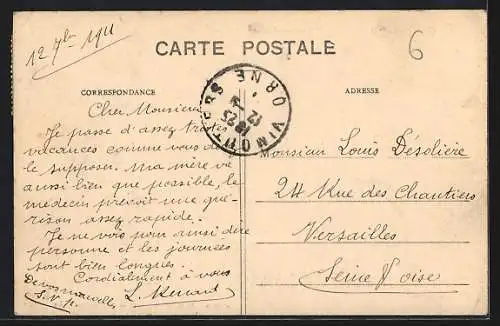 12 7bre 1911
CARTE POSTALE
6
CORRESPONDANCE
ADRESSE
VIMOUTIERS ORNE
18 25
12
Cher Monsieur
Je passe d'assez tristes
vacances comme vous devez
le supposer. Ma mère va
aussi bien que possible, le
médecin prévoit une gué-
rison assez rapide.
Je ne vois pour ainsi dire
personne et les journées
sont bien longues.
Cordialement à vous
L. Menard
De vos nouvelles
S.V.P.
Monsieur Louis Désolière
24 Rue des Chantiers
Versailles
Seine & Oise